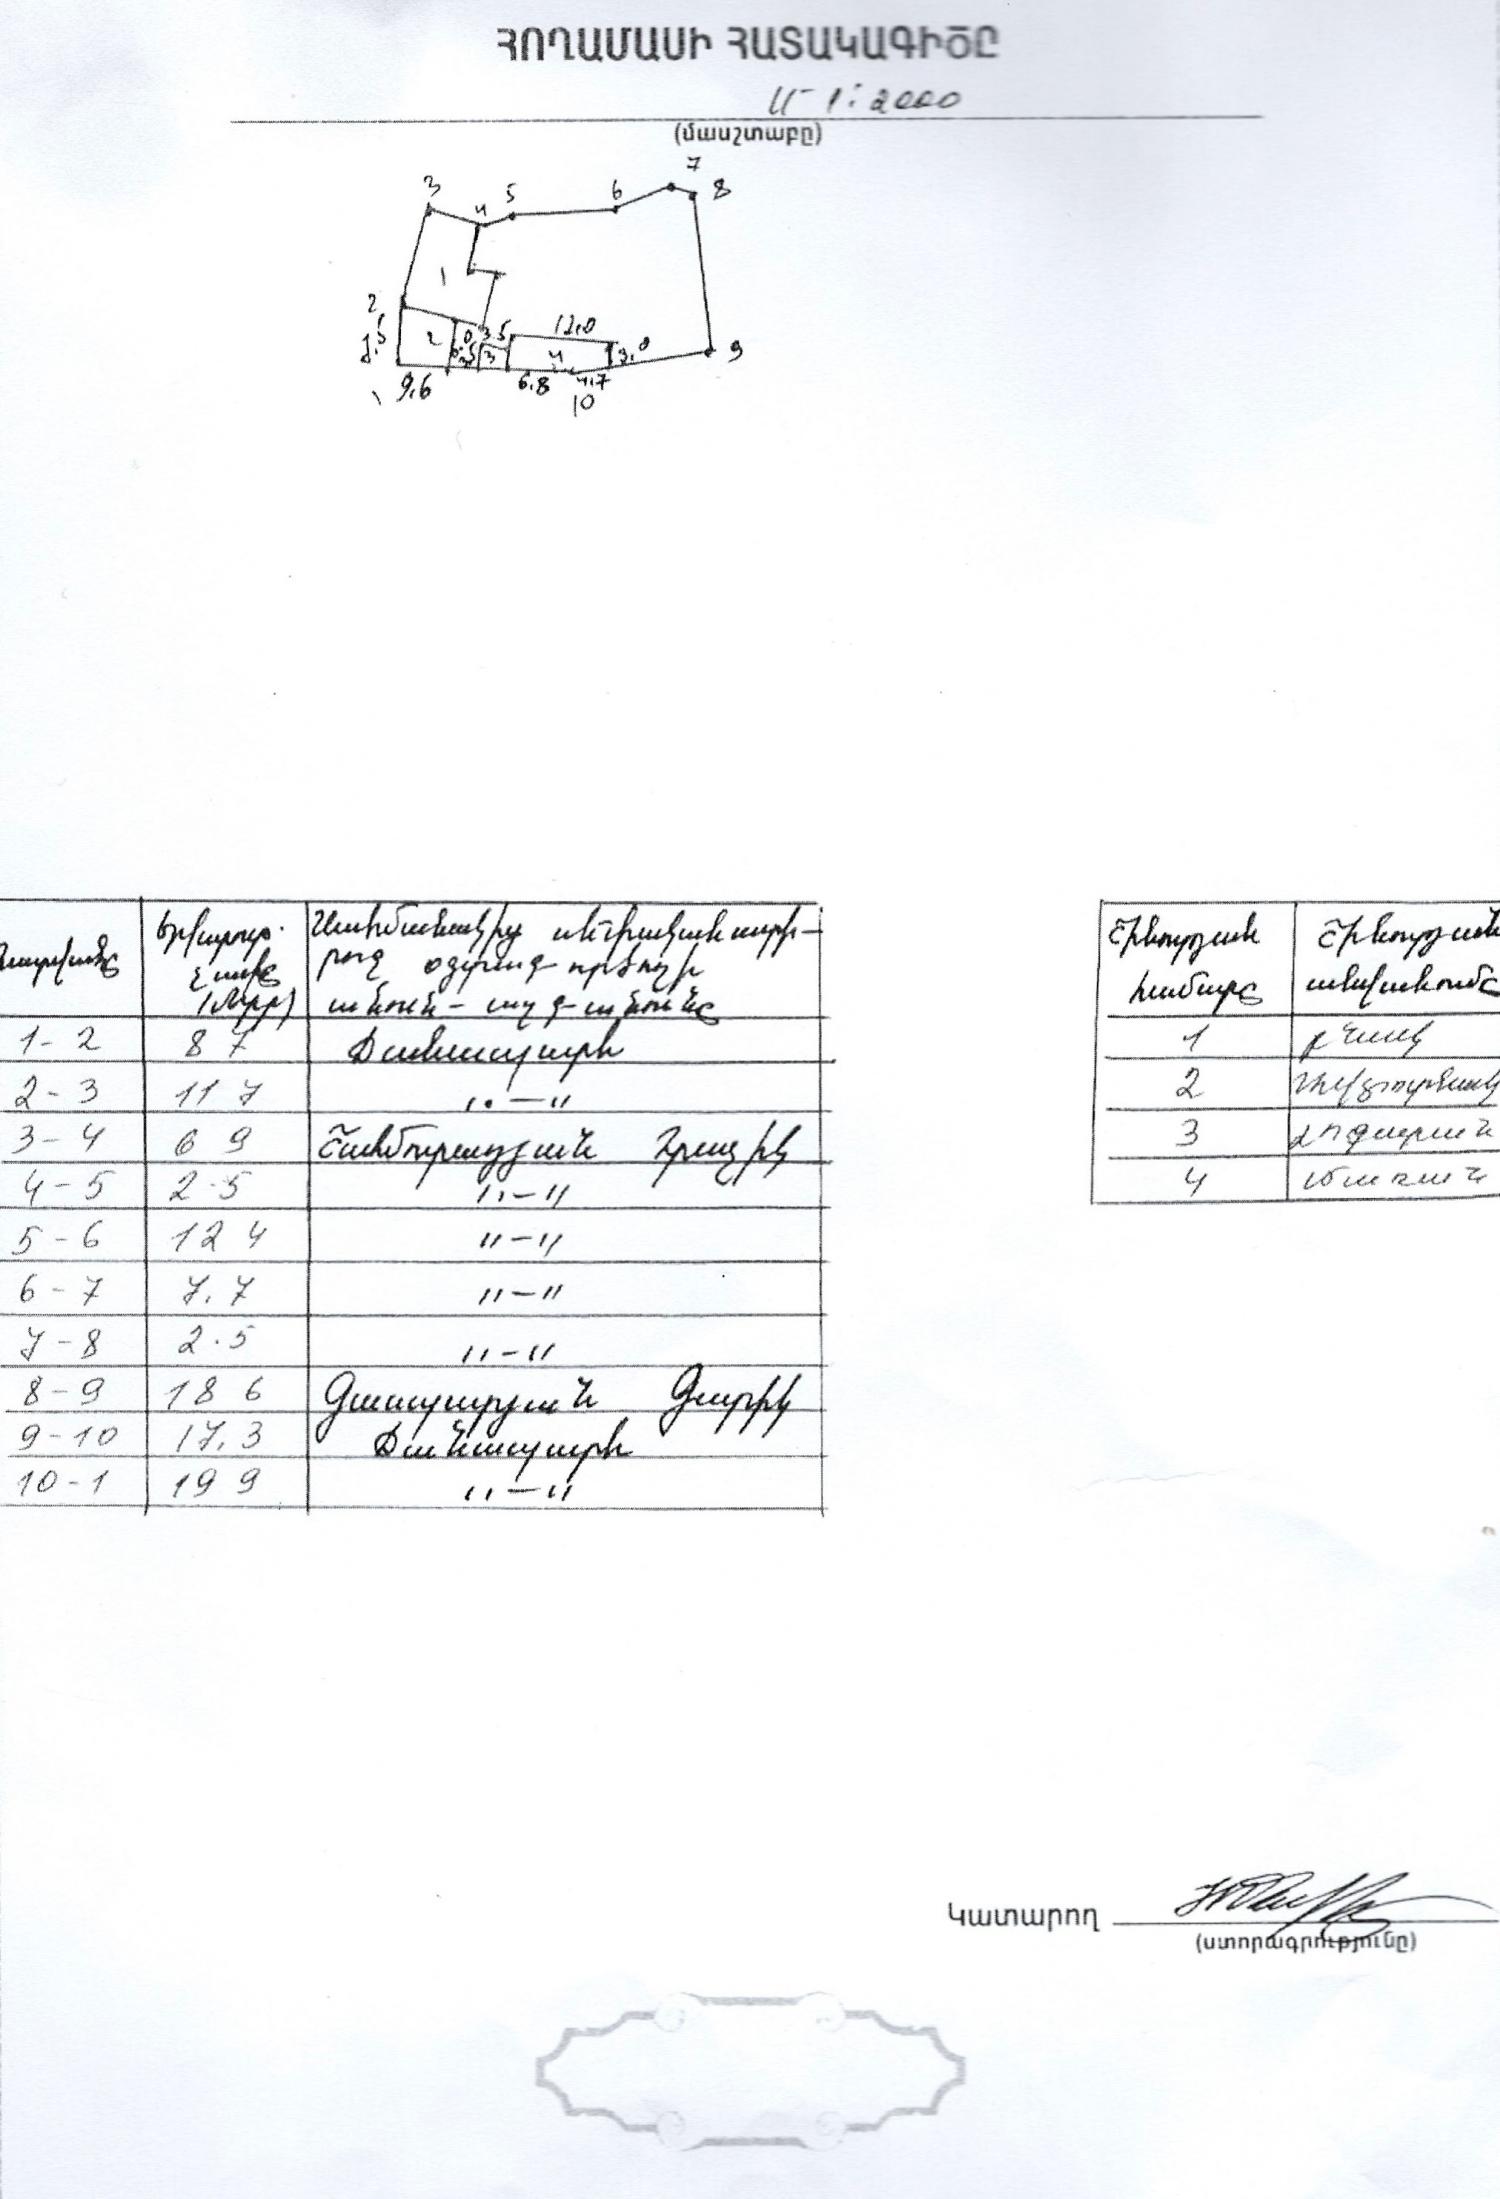 ՀՈՂԱՄԱՍԻ ՀԱՏԱԿԱԳԻԾԸ
Մ 1:2000
(մասշտաբը)
7
3 5 6 8
4
1
2
12,0
2 0 3.5
3 4 3,0 9
9,6 6,8 4,7
1 10
Երկարութ. Սահմանակից սեփականատի- Շինության Շինության
յունը րոջ օգտագործողի համարը անվանումը
(մետր) անուն-ազգանունը
1-2 8 7 Ճանապարհ 1 բնակ
2-3 11 7 ,,-,, 2
3-4 6 9 Շահմուրադյան Հրաչիկ 3
4-5 2.5 ,,-,, 4
5-6 12 4 ,,-,,
6-7 7.7 ,,-,,
7-8 2.5 ,,-,,
8-9 18 6 Գասպարյան Գարիկ
9-10 17.3 Ճանապարհ
10-1 19 9 ,,-,,
Կատարող
(ստորագրությունը)